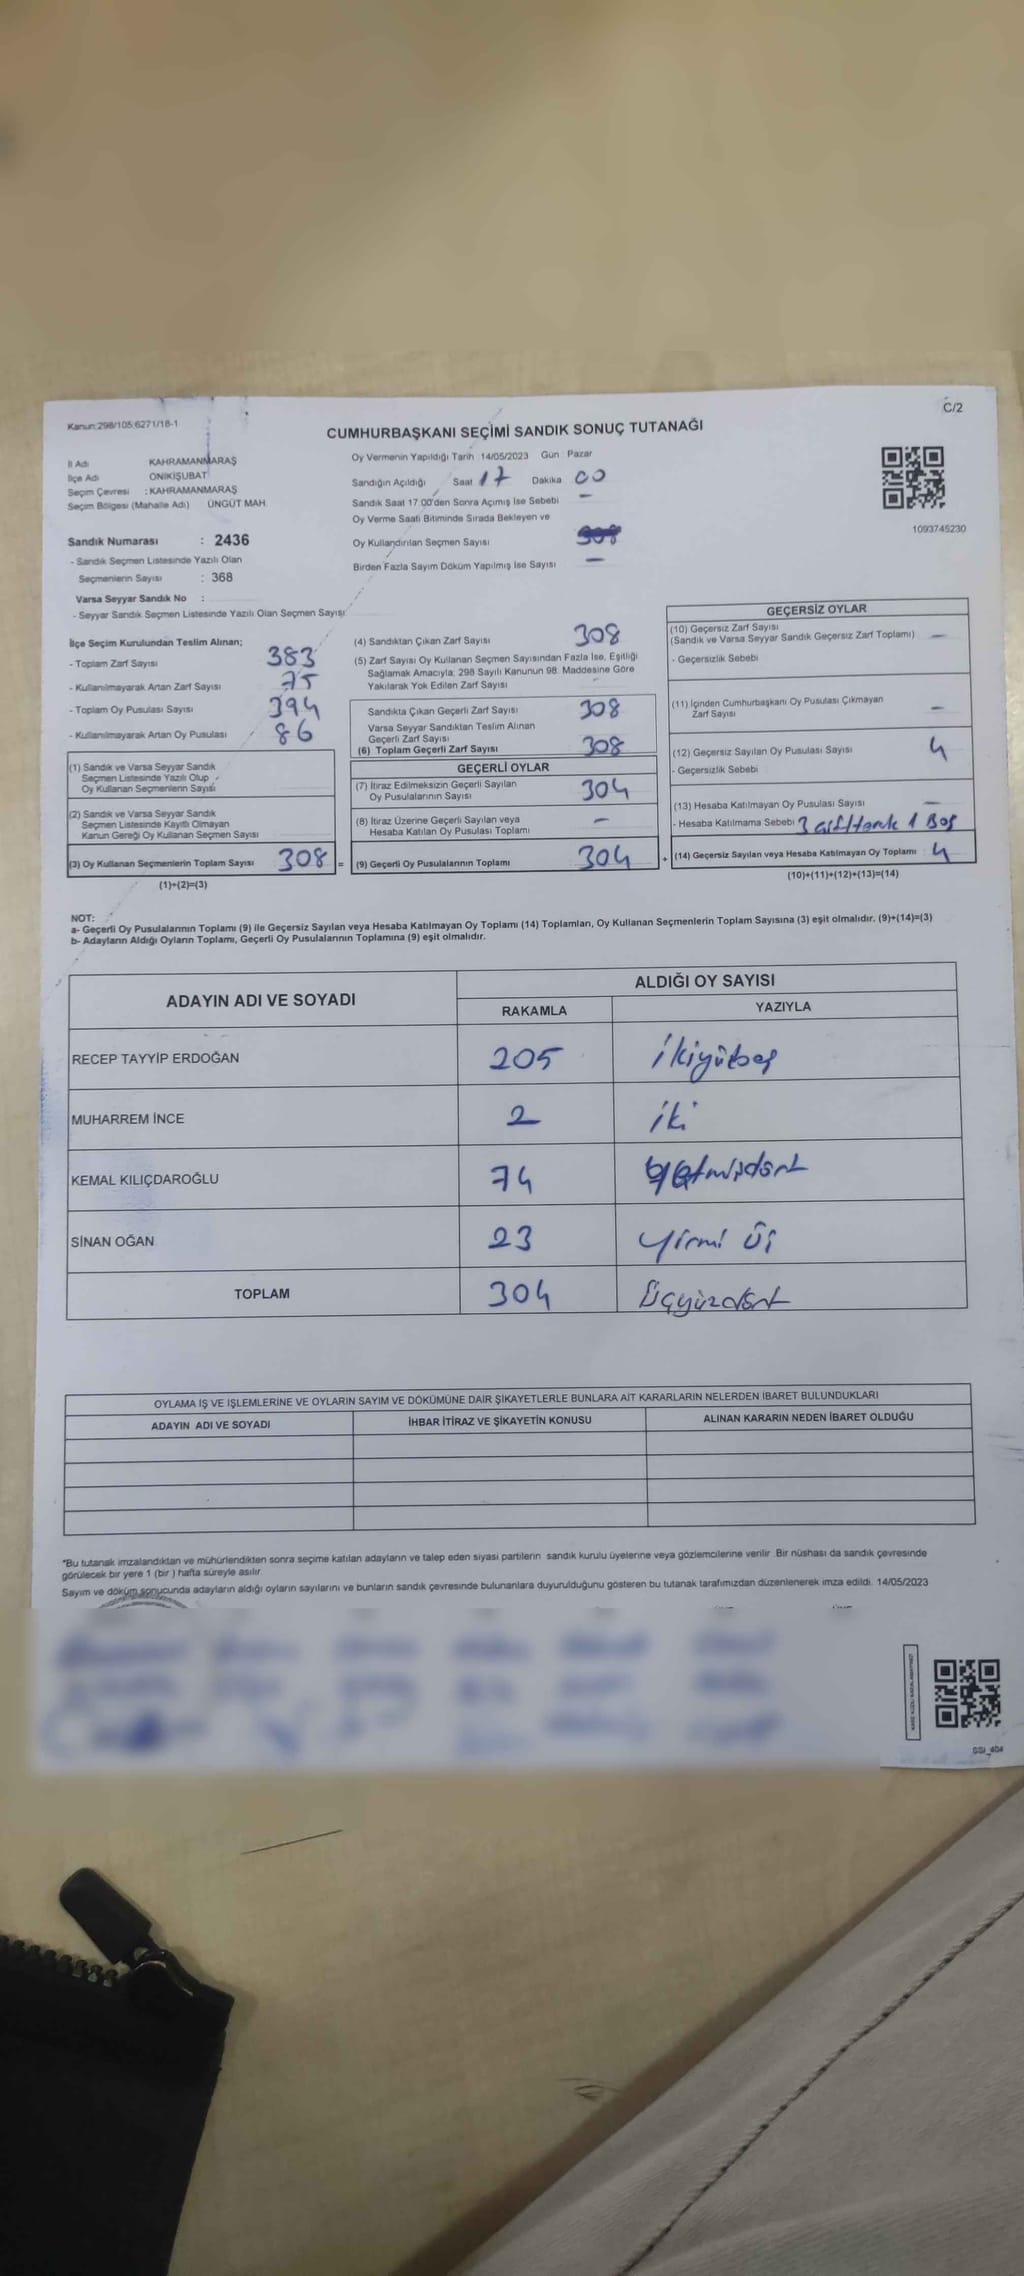 C/2
Kanun:298/105,6271/18-1
CUMHURBAŞKANI SEÇİMİ SANDIK SONUÇ TUTANAĞI
İl Adı KAHRAMANMARAŞ
İlçe Adı ONİKİŞUBAT
Seçim Çevresi : KAHRAMANMARAŞ
Seçim Bölgesi (Mahalle Adı) ÜNGÜT MAH.
Sandık Numarası : 2436
- Sandık Seçmen Listesinde Yazılı Olan
Seçmenlerin Sayısı : 368
Varsa Seyyar Sandık No :
- Seyyar Sandık Seçmen Listesinde Yazılı Olan Seçmen Sayısı:
Oy Vermenin Yapıldığı Tarih 14/05/2023 Gün : Pazar
Sandığın Açıldığı Saat 17 Dakika 00
Sandık Saat 17.00'den Sonra Açımış İse Sebebi –
Oy Verme Saati Bitiminde Sırada Bekleyen ve
Oy Kullandırılan Seçmen Sayısı 308
Birden Fazla Sayım Döküm Yapılmış İse Sayısı –
1093745230
İlçe Seçim Kurulundan Teslim Alınan;
- Toplam Zarf Sayısı 383
- Kullanılmayarak Artan Zarf Sayısı 75
- Toplam Oy Pusulası Sayısı 394
- Kullanılmayarak Artan Oy Pusulası 86
(1) Sandık ve Varsa Seyyar Sandık
Seçmen Listesinde Yazılı Olup
Oy Kullanan Seçmenlerin Sayısı
(2) Sandık ve Varsa Seyyar Sandık
Seçmen Listesinde Kayıtlı Olmayan
Kanun Gereği Oy Kullanan Seçmen Sayısı
(3) Oy Kullanan Seçmenlerin Toplam Sayısı 308 =
(1)+(2)=(3)
(4) Sandıktan Çıkan Zarf Sayısı 308
(5) Zarf Sayısı Oy Kullanan Seçmen Sayısından Fazla İse, Eşitliği
Sağlamak Amacıyla, 298 Sayılı Kanunun 98. Maddesine Göre
Yakılarak Yok Edilen Zarf Sayısı
Sandıkta Çıkan Geçerli Zarf Sayısı 308
Varsa Seyyar Sandıktan Teslim Alınan
Geçerli Zarf Sayısı
(6) Toplam Geçerli Zarf Sayısı 308
GEÇERLİ OYLAR
(7) İtiraz Edilmeksizin Geçerli Sayılan
Oy Pusulalarının Sayısı 304
(8) İtiraz Üzerine Geçerli Sayılan veya
Hesaba Katılan Oy Pusulası Toplamı –
(9) Geçerli Oy Pusulalarının Toplamı 304 +
GEÇERSİZ OYLAR
(10) Geçersiz Zarf Sayısı
(Sandık ve Varsa Seyyar Sandık Geçersiz Zarf Toplamı) –
- Geçersizlik Sebebi
(11) İçinden Cumhurbaşkanı Oy Pusulası Çıkmayan
Zarf Sayısı –
(12) Geçersiz Sayılan Oy Pusulası Sayısı 4
- Geçersizlik Sebebi
(13) Hesaba Katılmayan Oy Pusulası Sayısı –
- Hesaba Katılmama Sebebi 3 1 Boş
(14) Geçersiz Sayılan veya Hesaba Katılmayan Oy Toplamı 4
(10)+(11)+(12)+(13)=(14)
NOT:
a- Geçerli Oy Pusulalarının Toplamı (9) ile Geçersiz Sayılan veya Hesaba Katılmayan Oy Toplamı (14) Toplamları, Oy Kullanan Seçmenlerin Toplam Sayısına (3) eşit olmalıdır. (9)+(14)=(3)
b- Adayların Aldığı Oyların Toplamı, Geçerli Oy Pusulalarının Toplamına (9) eşit olmalıdır.
ADAYIN ADI VE SOYADI ALDIĞI OY SAYISI
RAKAMLA YAZIYLA
RECEP TAYYİP ERDOĞAN 205 ikiyüzbeş
MUHARREM İNCE 2 iki
KEMAL KILIÇDAROĞLU 74 yetmişdört
SİNAN OĞAN 23 yirmi üç
TOPLAM 304 Üçyüzdört
OYLAMA İŞ VE İŞLEMLERİNE VE OYLARIN SAYIM VE DÖKÜMÜNE DAİR ŞİKAYETLERLE BUNLARA AİT KARARLARIN NELERDEN İBARET BULUNDUKLARI
ADAYIN ADI VE SOYADI İHBAR İTİRAZ VE ŞİKAYETİN KONUSU ALINAN KARARIN NEDEN İBARET OLDUĞU
*Bu tutanak imzalandıktan ve mühürlendikten sonra seçime katılan adayların ve talep eden siyasi partilerin sandık kurulu üyelerine veya gözlemcilerine verilir. Bir nüshası da sandık çevresinde
görülecek bir yere 1 (bir ) hafta süreyle asılır.
Sayım ve döküm sonucunda adayların aldığı oyların sayılarını ve bunların sandık çevresinde bulunanlara duyurulduğunu gösteren bu tutanak tarafımızdan düzenlenerek imza edildi. 14/05/2023